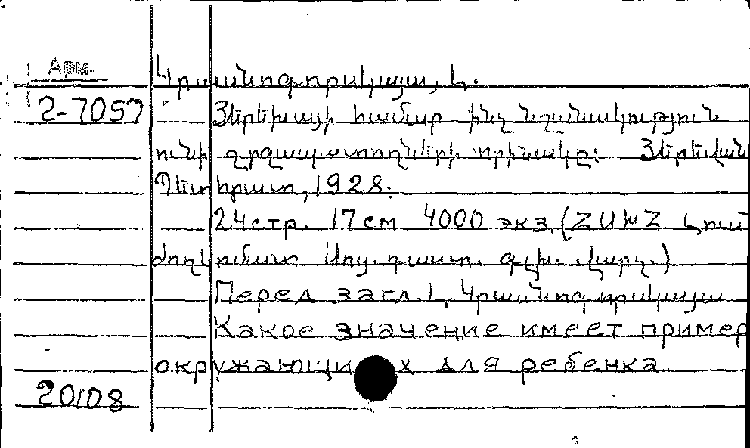 Арм.
Կրասնոգորսկայա, Լ.
2-7057
Յերեխայի համար ինչ նշանակություն
ունի շրջապատողների որինակը: Յերեվան
Պետհրատ, 1928.
24стр. 17см 4000 экз. (ZUWZ Լուս
ժողկոմատ Սոց. դաստ. գլխ. վարչ.)
Перед загл. Լ. Կրասնոգորսկայա
Какое значение имеет пример
окружающих для ребенка
20108